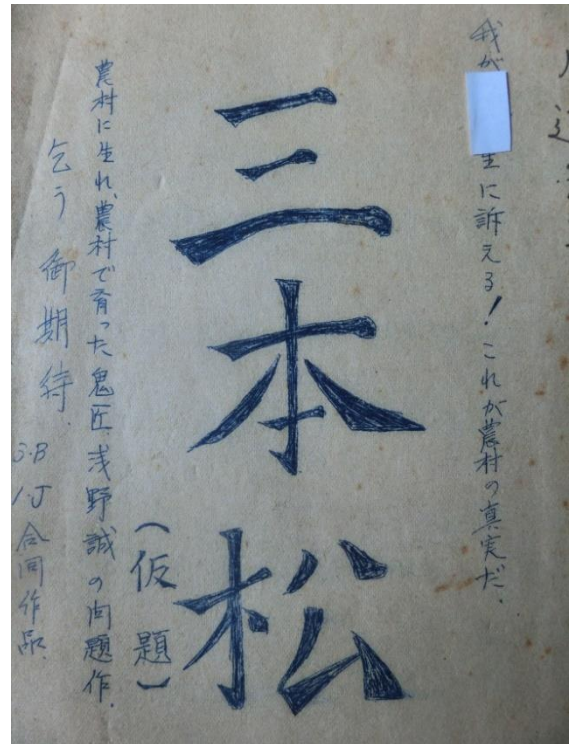 我が生に訴える!これが農村の真実だ.
三本松
(仮題)
農村に生れ、農村で育った鬼匠、浅野誠の問題作.
乞う御期待.
3.B
1.J合同作品.